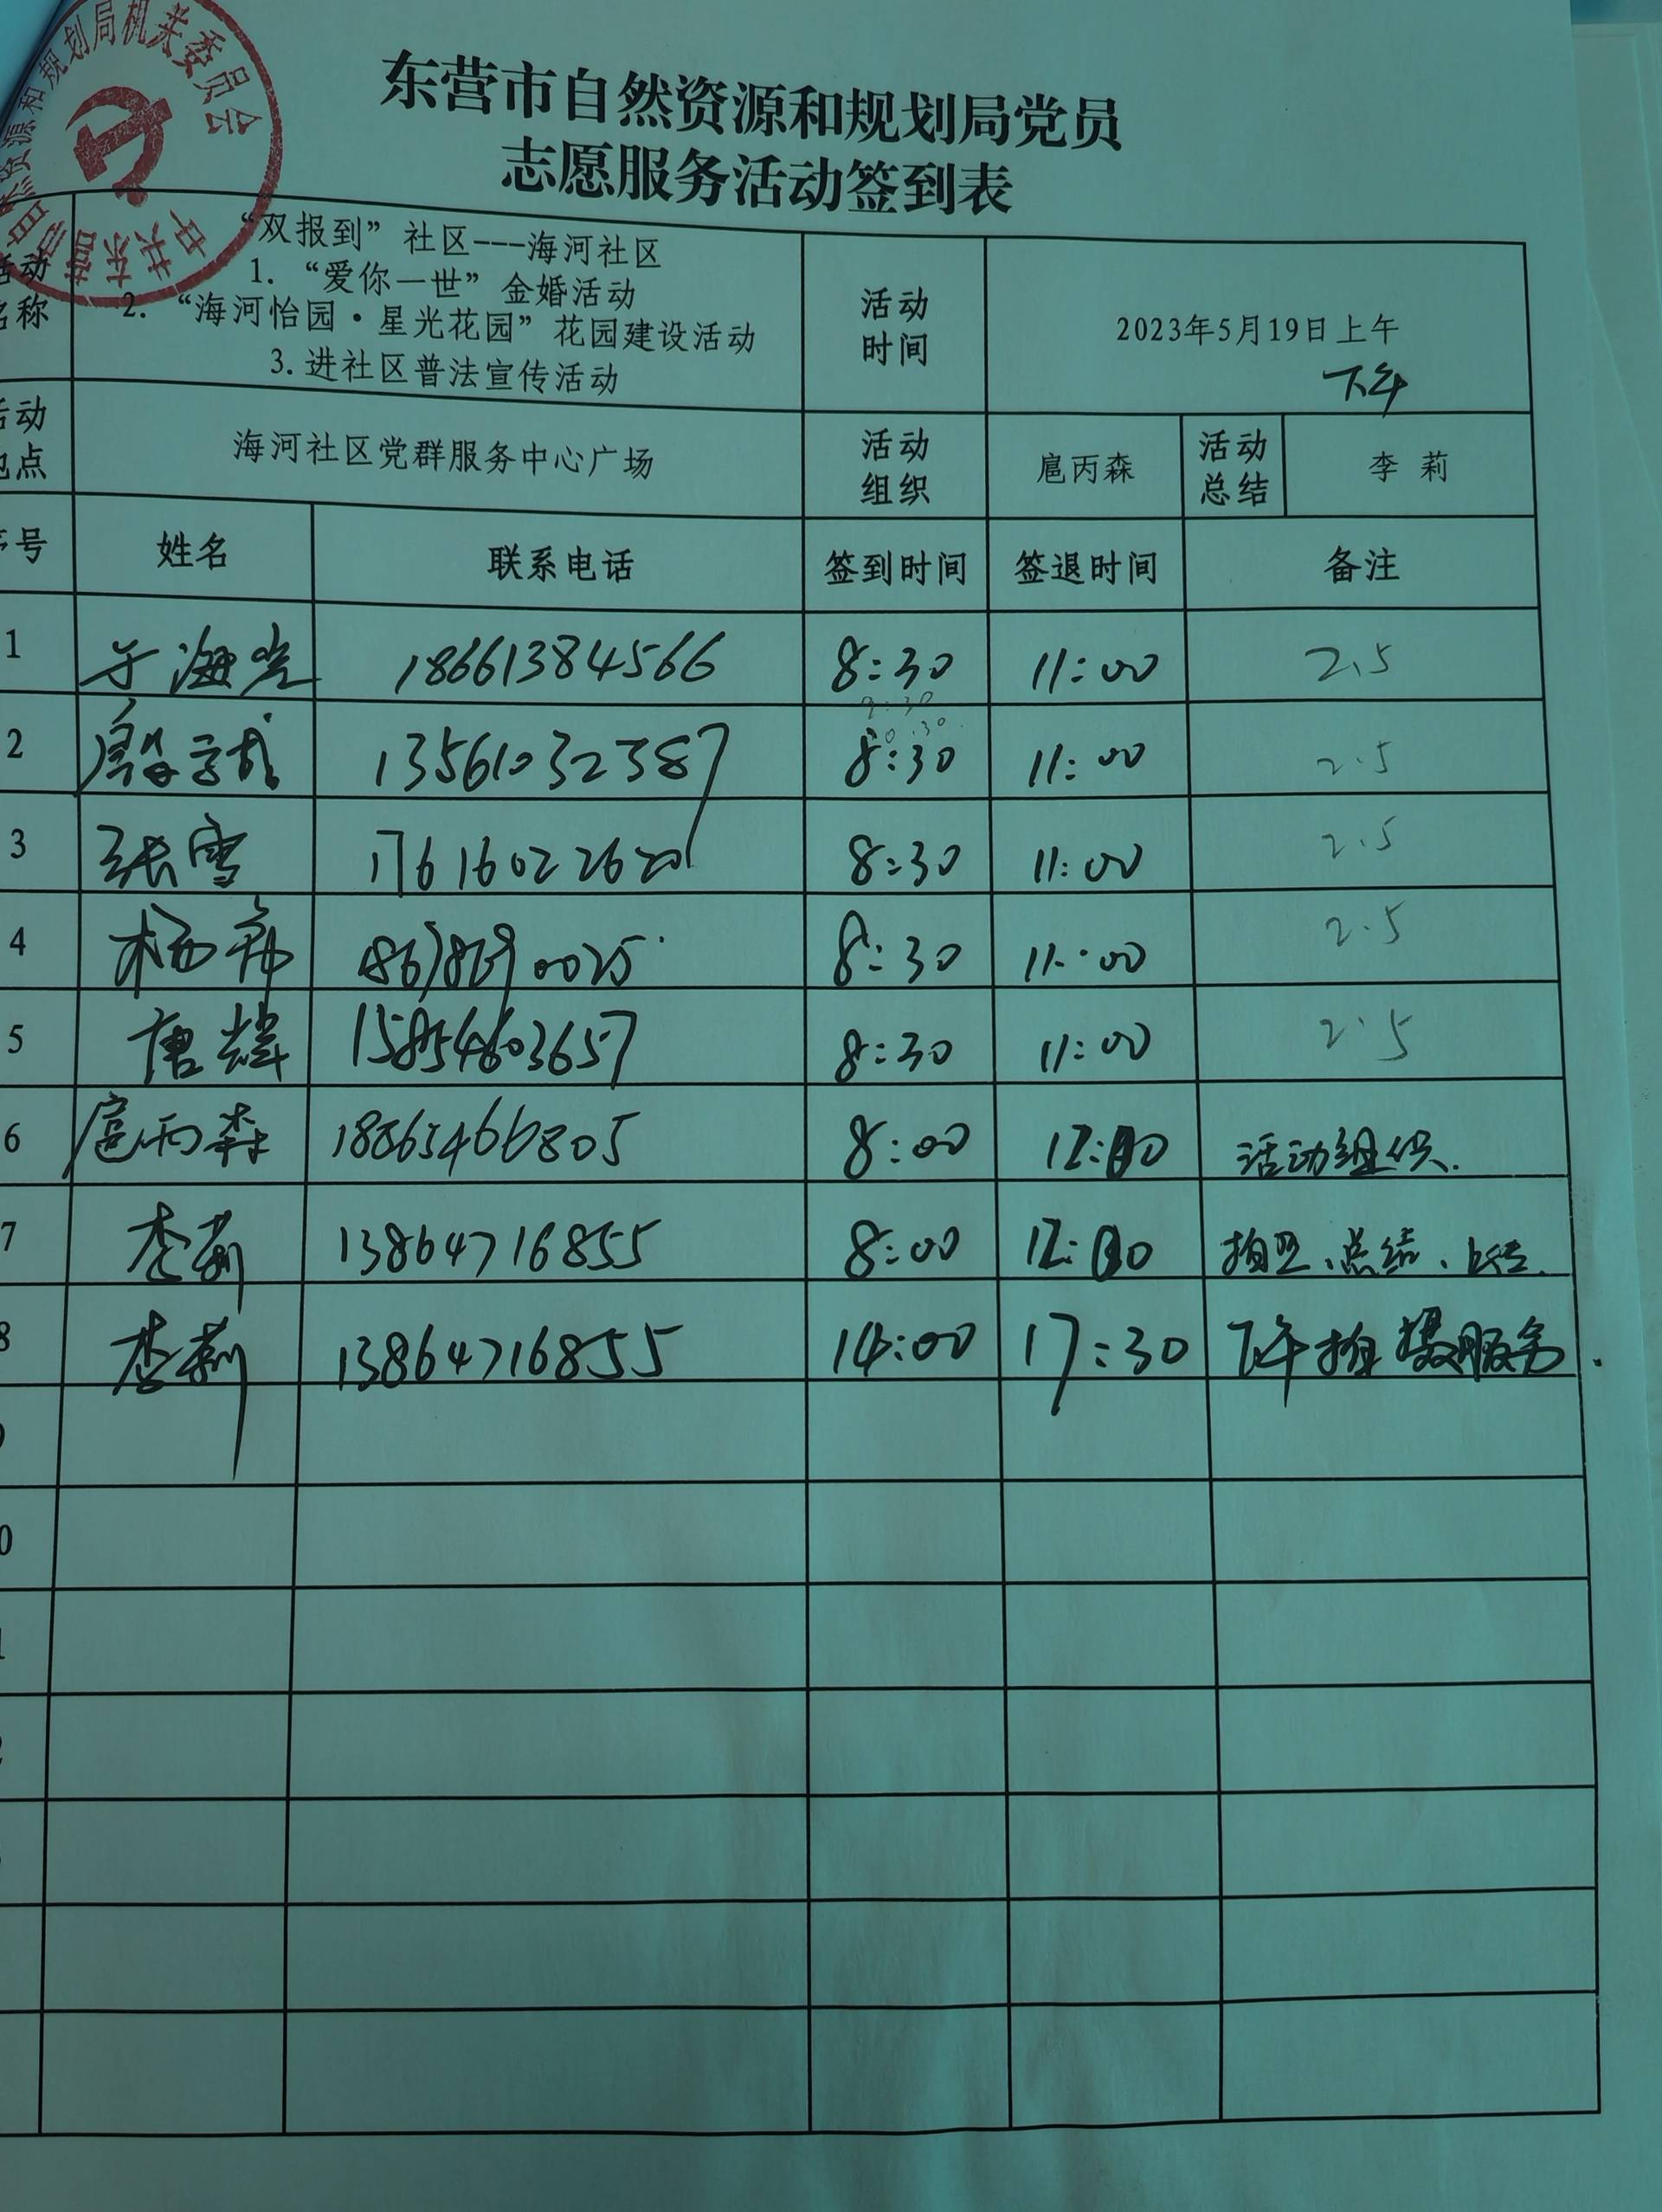 东营市自然资源和规划局党员
志愿服务活动签到表
活动名称
“双报到”社区---海河社区
1.“爱你一世”金婚活动
2.“海河怡园·星光花园”花园建设活动
3.进社区普法宣传活动
活动时间
2023年5月19日上午
下午
活动地点
海河社区党群服务中心广场
活动组织
扈丙森
活动总结
李 莉
序号 姓名 联系电话 签到时间 签退时间 备注
1 于海光 18661384566 8:30 11:00 2.5
2 13561032387 8:30 11:00 2.5
3 张雪 17616022620 8:30 11:00 2.5
4 杨 8:30 11:00 2.5
5 唐辉 15854603657 8:30 11:00 2.5
6 扈丙森 18865466805 8:00 12:00 活动组织.
7 李莉 13864716855 8:00 12:00 拍照、总结、上传.
8 李莉 13864716855 14:00 17:30 下午拍摄服务.